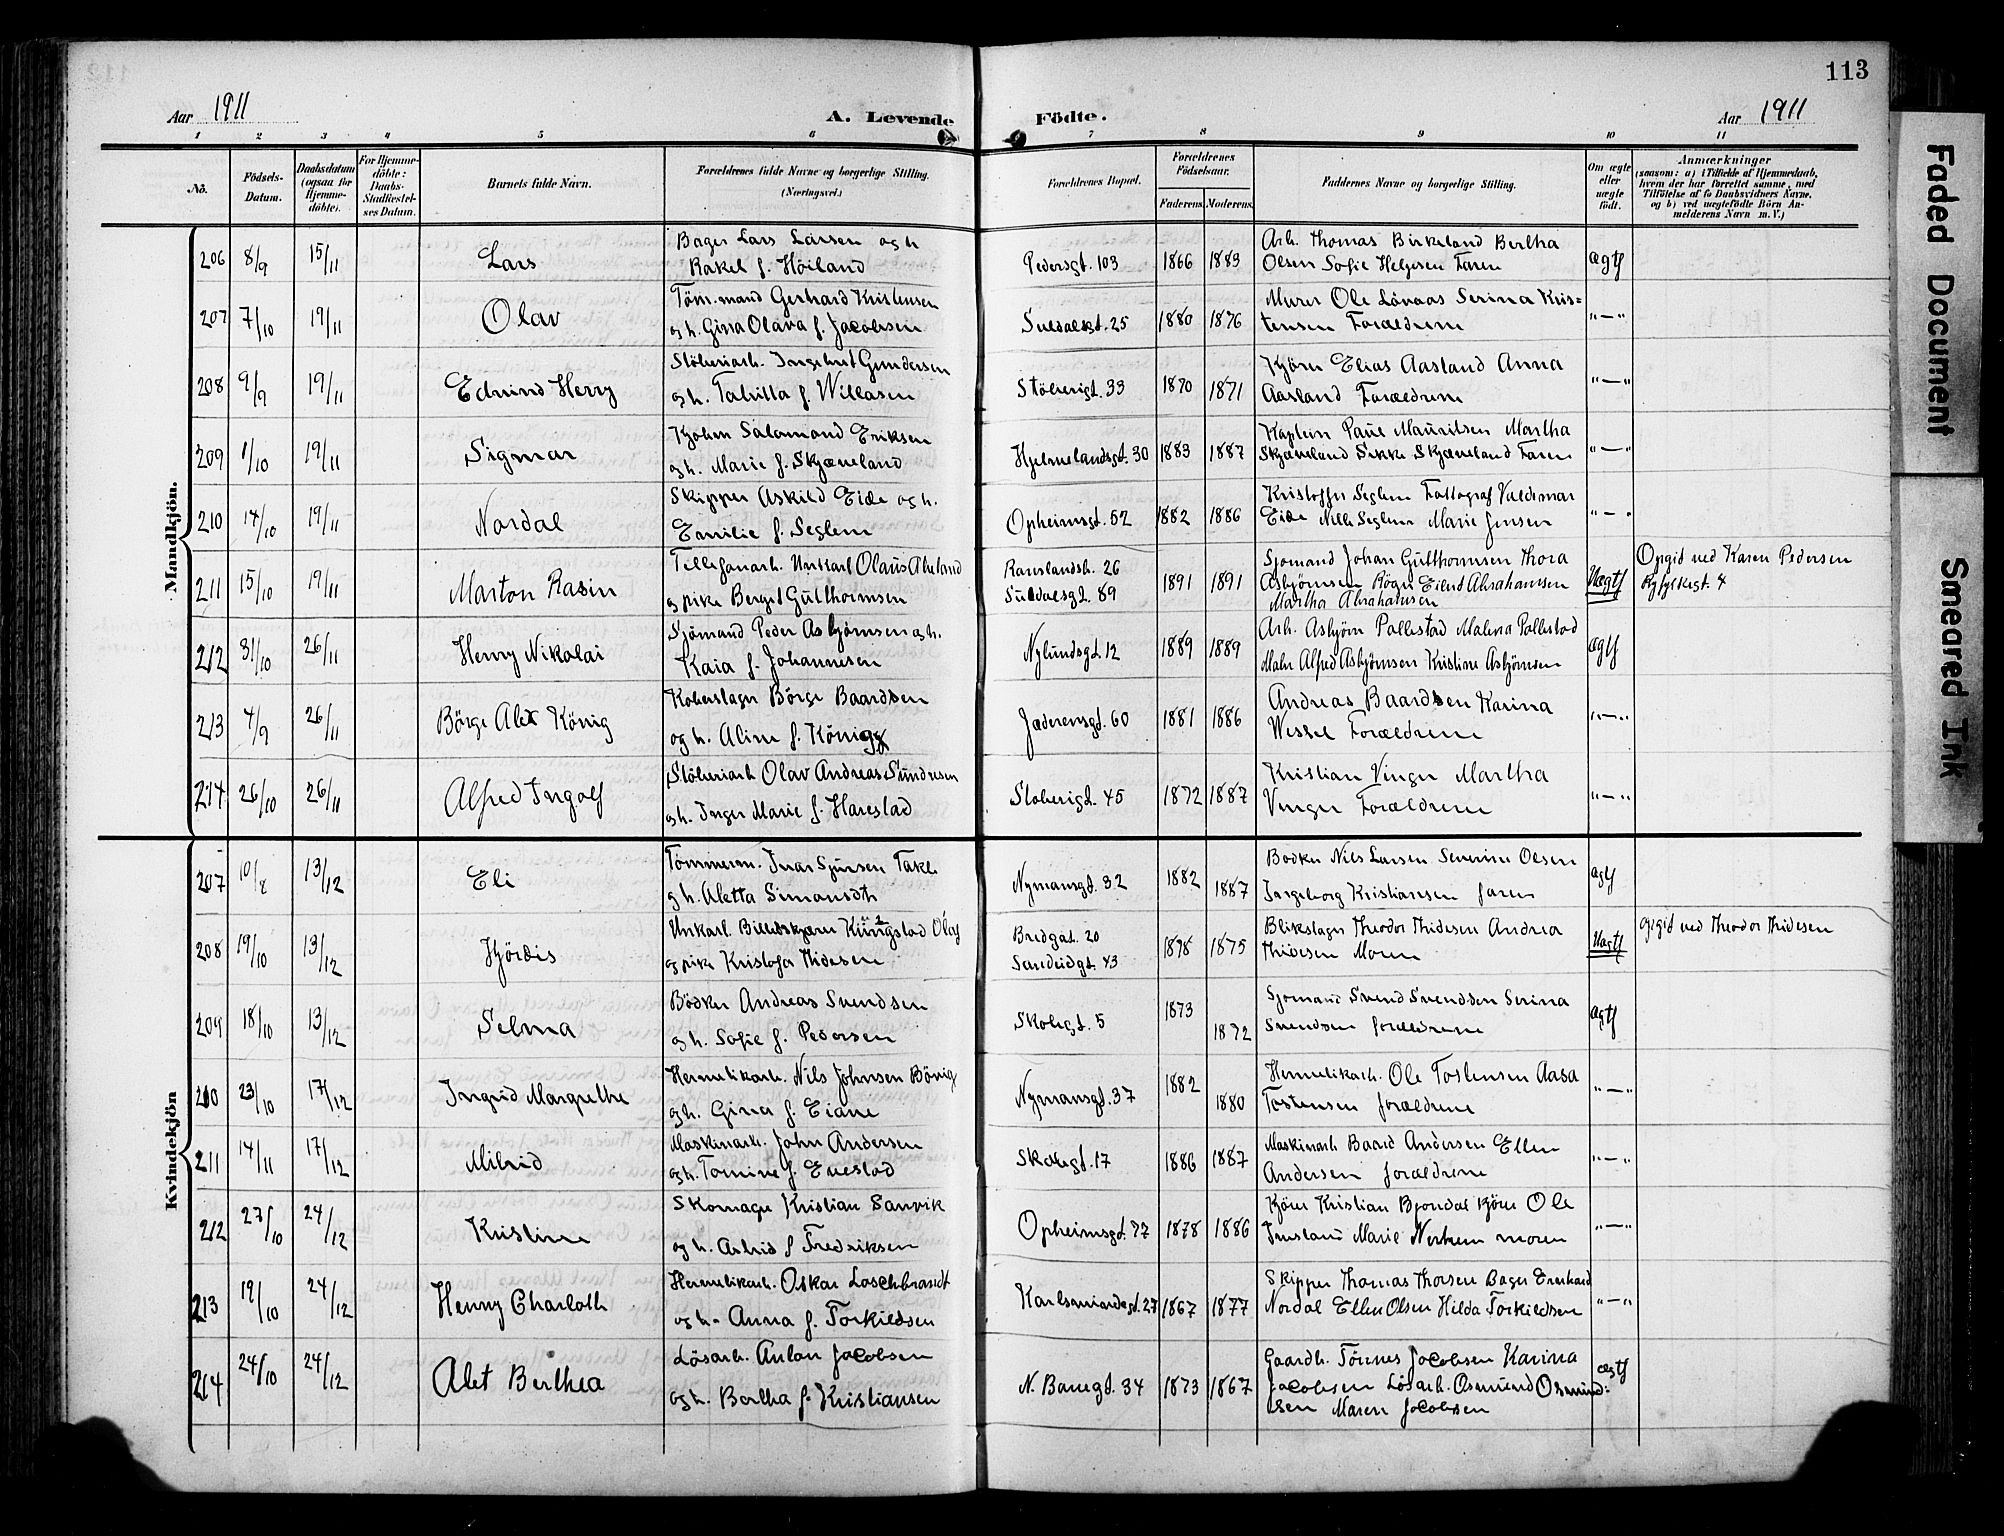 113
Aar 1911
A. Levende Födte.
Aar 1911
1 2 3 4 5 6 7 8 9 10 11
No.
Födsels-Datum.
Daabsdatum (ogsaa for Hjemme-döbte).
For Hjemme-döbte: Daabs-Stadfæstel-ses Datum.
Barnets fulde Navn.
Forældrenes fulde Navne og borgerlige Stilling. (Næringsvei.)
Forældrenes Bopæl.
Forældrenes Födselsaar.
Faderens. Moderens.
Faddernes Navne og borgerlige Stilling.
Om ægte eller uægte født.
Anmærkninger
(saasom: a) i Tilfælde af Hjemmedaab, hvem der har forrettet samme, med Tilföielse af to Daabsvidners Navne, og b) ved uægtefödte Börn An-melderens Navn m. V.)
Mandkjön.
206 8/9 15/11 Lars Bager Lars Larsen og h. Rakel f. Höiland Pedersgt. 103 1866 1883 Arb. Thomas Birkeland Bertha Olsen Sofie Helgesen Faren ægtf
207 7/10 19/11 Olav Töm.mand Gerhard Kristensen og h. Gina Olava f. Jacobsen Suldalsgt. 25 1880 1876 Murer Ole Lövaas Serina Kris=tensen Forældrene "—"
208 9/9 19/11 Edvind Herry Stöberiarb. Ingebret Gundersen og h. Tabitta f. Willasen Stöberigt. 33 1870 1871 Kjörer Elias Aasland Anna Aasland Forældrene "—"
209 1/10 19/11 Sigmar Kjöbm Salamond Eriksen og h. Marie f. Skjæveland Hjelmelandsgt. 30 1883 1887 Kaptein Paul Mauritsen Martha Skjæveland Sikke Skjæveland Faren "—"
210 14/10 19/11 Nordal Skipper Askild Eide og h. Emilie f. Seglem Opheimsgt. 52 1882 1886 Kristoffer Seglem Fottograf Valdemar Eide Nille Seglem Marie Jensen "—"
211 15/10 19/11 Morton Rasin Tillefonarb. Unkarl Olaus Abeland og pike Berget Gutthormsen Ramslandsh. 26 Suldalsgt. 89 1891 1891 Sjomand Johan Gutthormsen Thora Asbjörnsen Röger Eilert Abrahamsen Martha Abrahamsen Uægtf Opgid ved Karen Pedersen Ryfylkegt. 4
212 31/10 26/11 Henry Nikolai Sjömand Peder Asbjörnsen og h. Kaia f. Johannesen Nylundsgt. 12 1889 1889 Arb. Asbjörn Pollestad Malena Pollestad Maler Alfred Asbjörnsen Kristine Asbjörnsen ægtf
213 4/9 26/11 Börge Alex König Koberslager Börge Baardsen og h. Aline f. König Jæderensgt. 60 1881 1886 Andreas Baardsen Karina Wessel Forældrene "—"
214 26/10 26/11 Alfred Ingolf Stöberiarb Olav Andreas Sundesen og h. Inger Marie f. Harestad Stoberigt. 45 1872 1887 Kristian Vinger Martha Vinger Forældrene "—"
Kvindekjön
207 10/8 13/12 Eli Tömmerm. Ivar Sjursen Takle og h. Aletta Simonsdtr Nymansgt. 32 1882 1887 Bodker Nils Larsen Severine Olsen Ingeborg Kristiansen faren ægtf
208 19/10 13/12 Hjördis Unkarl. Olaf og pike Kristofa Thidesen Bredgat. 20 Sandeidgt. 43 1878 1875 Blikslager Theodor Thidesen Andrea Thidesen Moren Uægtf opgid ved Theodor Thidesen
209 18/10 13/12 Selma Bödker Andreas Svendsen og h. Sofie f. Pedersen Skolegt. 5 1873 1872 Sjomand Svend Svendsen Serina Svendsen forældrene ægtf
210 23/10 17/12 Ingrid Margrethe Hermetikarb. Nils Johnsen Bönig og h. Gina f. Eiane Nymansgt. 37 1882 1880 Hermetikarb. Ole Tostensen Aasa Tostensen forældrene "—"
211 14/11 17/12 Milrid Maskinarb. John Andersen og h. Tomine f. Evestad Skolegt. 17 1886 1887 Maskinarb Baard Andersen Ellen Andersen forældrene "—"
212 27/10 24/12 Kristine Skomager Kristian Sanvik og h. Astrid f Fredriksen Opheimsgt. 77 1878 1886 Kjörer Kristian Bjordal kjörer Ole Marie moren "—"
213 19/10 24/12 Henny Charloth Hermetikarb. Oskar Loschbrandt og h. Anna f. Torkildsen Karlsmindegt. 27 1867 1877 Skipper Thomas Thorsen Bager Enerhard Nordal Ellen Olsen Hilda Torkildsen "—"
214 24/10 24/12 Alet Berthea Lösarb. Anton Jacobsen og h. Bertha f. Kristiansen N. Banegt. 34 1873 1867 Gaardb. Tönnes Jacobsen Karina Jacobsen Lösarb. Osmund Osmund=sen Maren Jacobsen ægtf
Faded Document
Smeared Ink